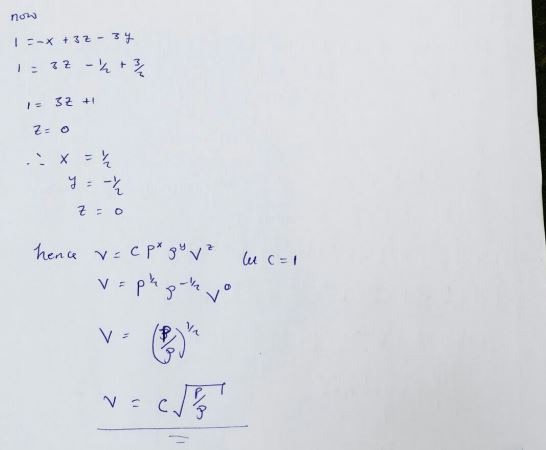 now
1 = -x + 3z - 3y
1 = 3z - 1/2 + 3/2
1 = 3z + 1
z = 0
∴ x = 1/2
y = -1/2
z = 0
hence v = C P^x ρ^y V^z let C = 1
V = P^1/2 ρ^-1/2 V^0
V = (P/ρ)^1/2
V = C √P/ρ